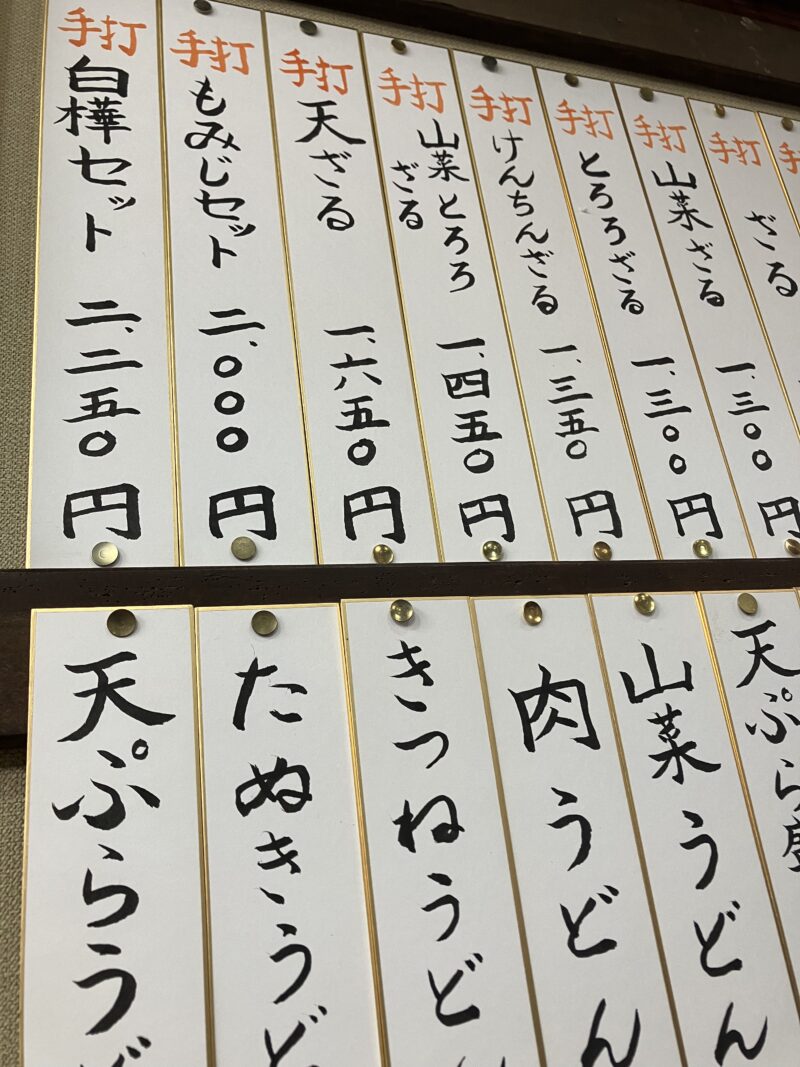 手打 ざる
手打 山菜ざる 一、三〇〇円
手打 とろろざる 一、三〇〇円
手打 けんちんざる 一、三五〇円
手打 山菜とろろ
ざる 一、四五〇円
手打 天ざる 一、六五〇円
手打 もみじセット 二、〇〇〇円
手打 白樺セット 二、二五〇円
天ぷら盛
山菜うどん
肉うどん
きつねうどん
たぬきうど
天ぷらうど